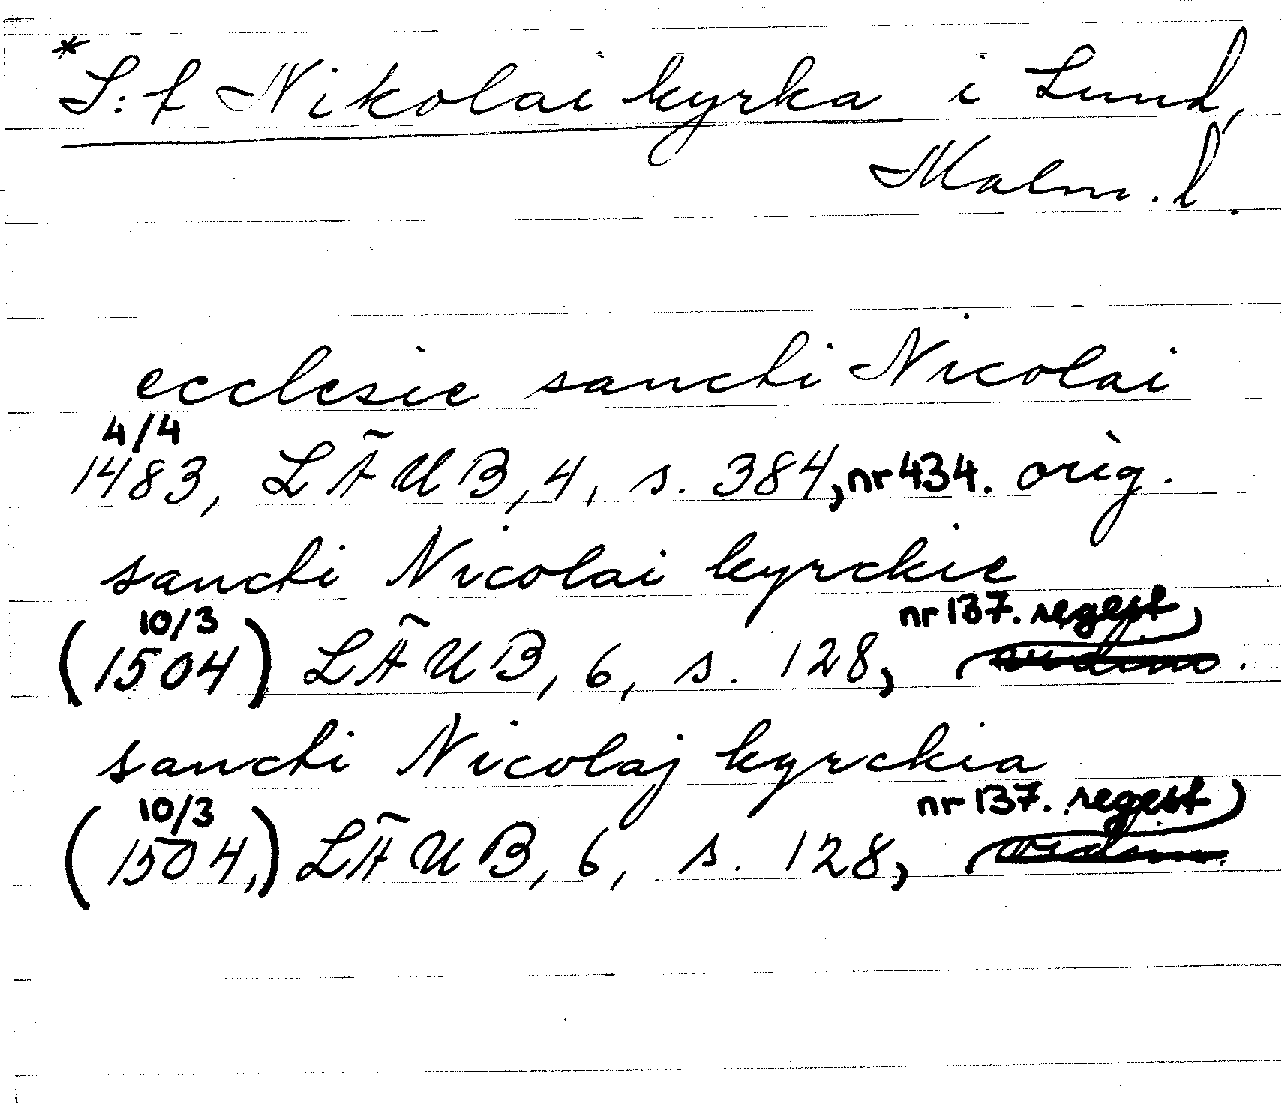 *S:t Nikolai kyrka i Lund,
Malm. l.
ecclesie sancti Nicolai
4/4
1483, LÄUB, 4, s. 384, nr 434. orig.
sancti Nicolai kyrckie
10/3 nr 137. regest
(1504) LÄUB, 6, s. 128,
sancti Nicolaj kyrckia
10/3 nr 137. regest
(1504,) LÄUB, 6, s. 128,